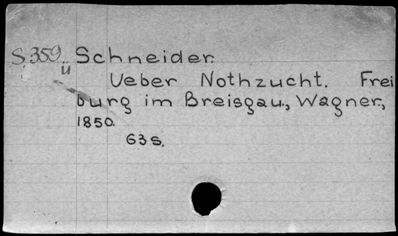 S.359. Schneider.
ü
Ueber Nothzucht. Frei
burg im Breisgau, Wagner,
1850.
63s.